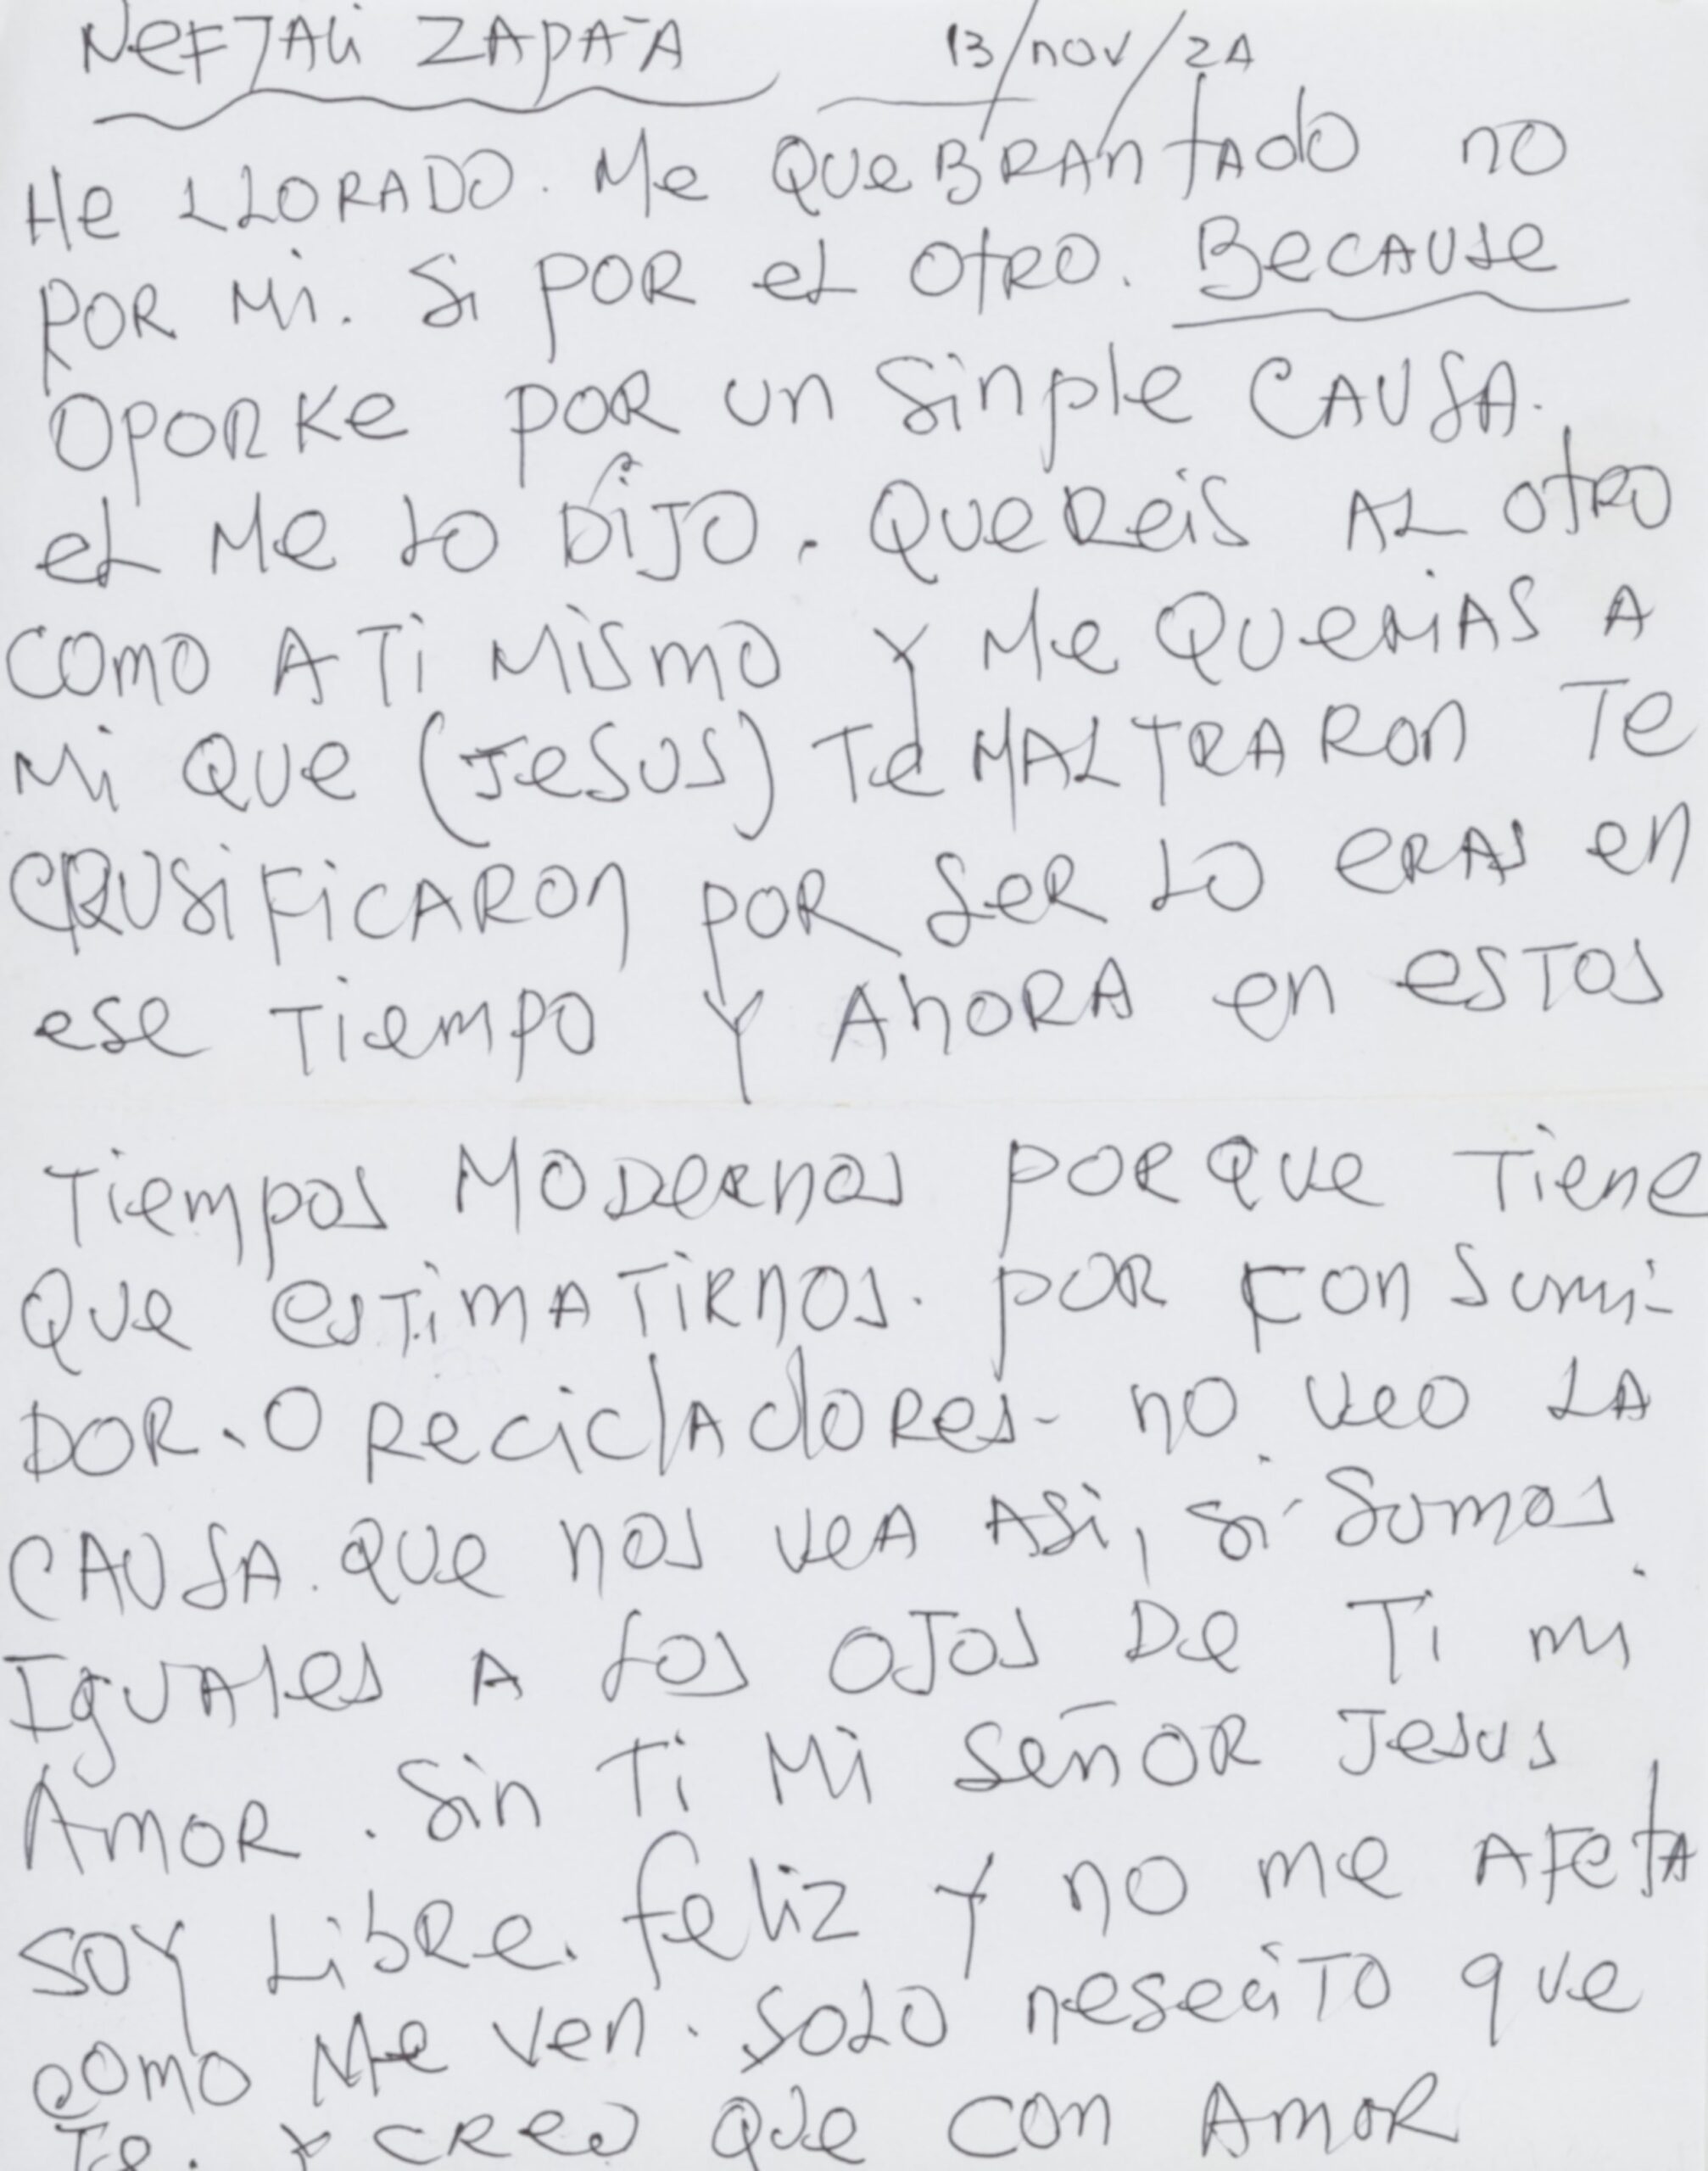 NefTALi ZAPATA 13/nov/24
He LLORADO. Me QUeBRAntAdo no
POR Mi. Si POR eL OtRO. BeCAUse
OPORKe POR un Sinple CAUSA.
eL Me LO DiJO. QUeReis AL OtRO
COmO A Ti MiSmO Y Me QUeRiAS A
Mi QUe (JeSUS) Te MALTRARon Te
CRUSiFiCARon POR SeR LO eRAS en
ese TiemPO Y AhORA en eSTOS
Tiempos MODeRnos PORQUe Tiene
QUe esTimATiRnos. POR ConSumi-
DOR. O ReciclAdoRes- no veo LA
CAUSA. QUe nos veA ASi, si Somos
IgUAles A Los OJos De Ti mi
AmOR. Sin Ti Mi SeñOR Jesus
SOY LibRe. feliz Y no me AFetA
como Me ven. SOLO neseciTO que
Te. Y CReo QUe Con AmOR